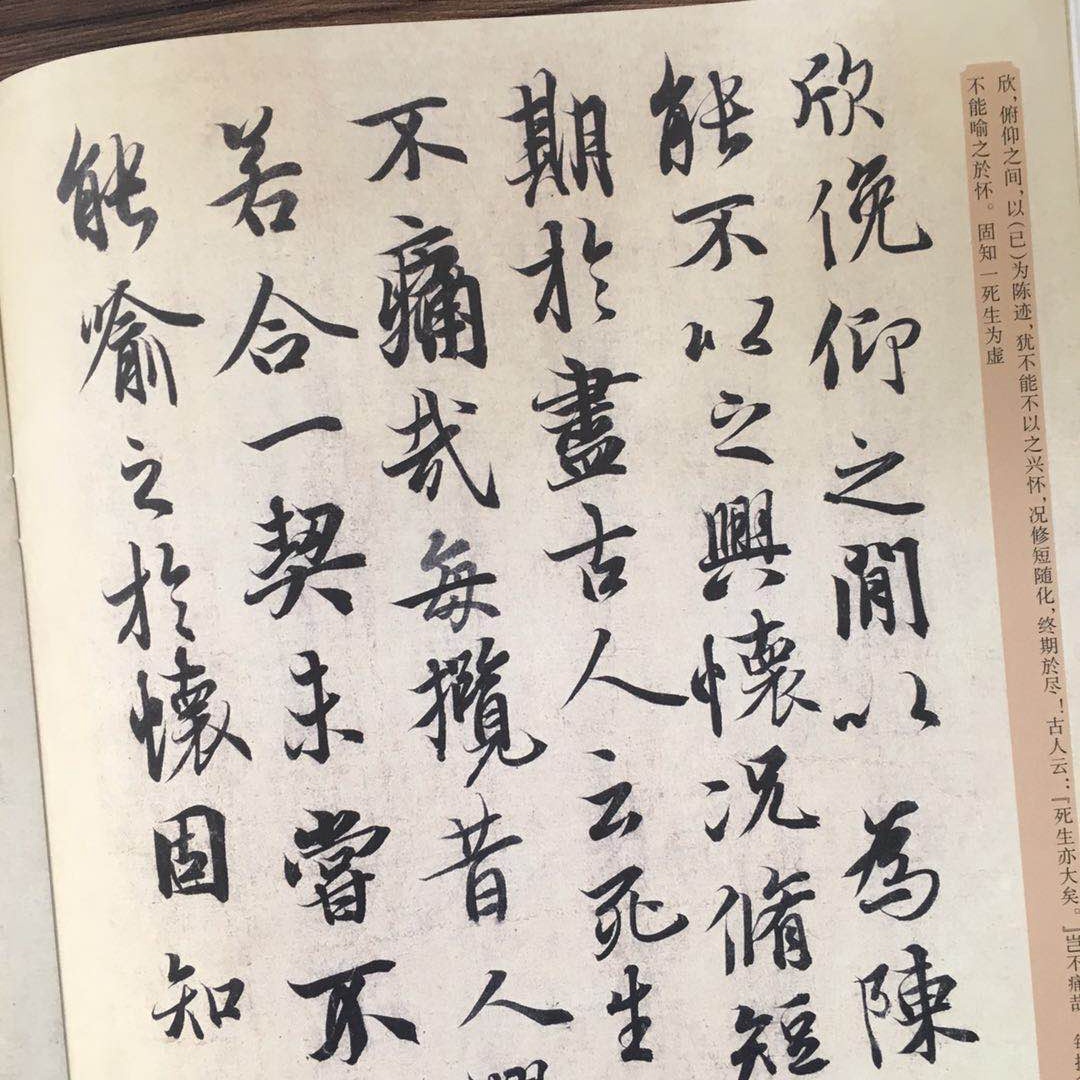 欣，俯仰之间，以（已）为陈迹，犹不能不以之兴怀，况修短随化，终期於尽！古人云：『死生亦大矣。』岂不痛哉
不能喻之於怀。固知一死生为虚
欣俛仰之閒以為陳
能不以之興懷況脩短
期於盡古人云死生
不痛哉每攬昔人
若合一契未嘗不
能喻之於懷固知